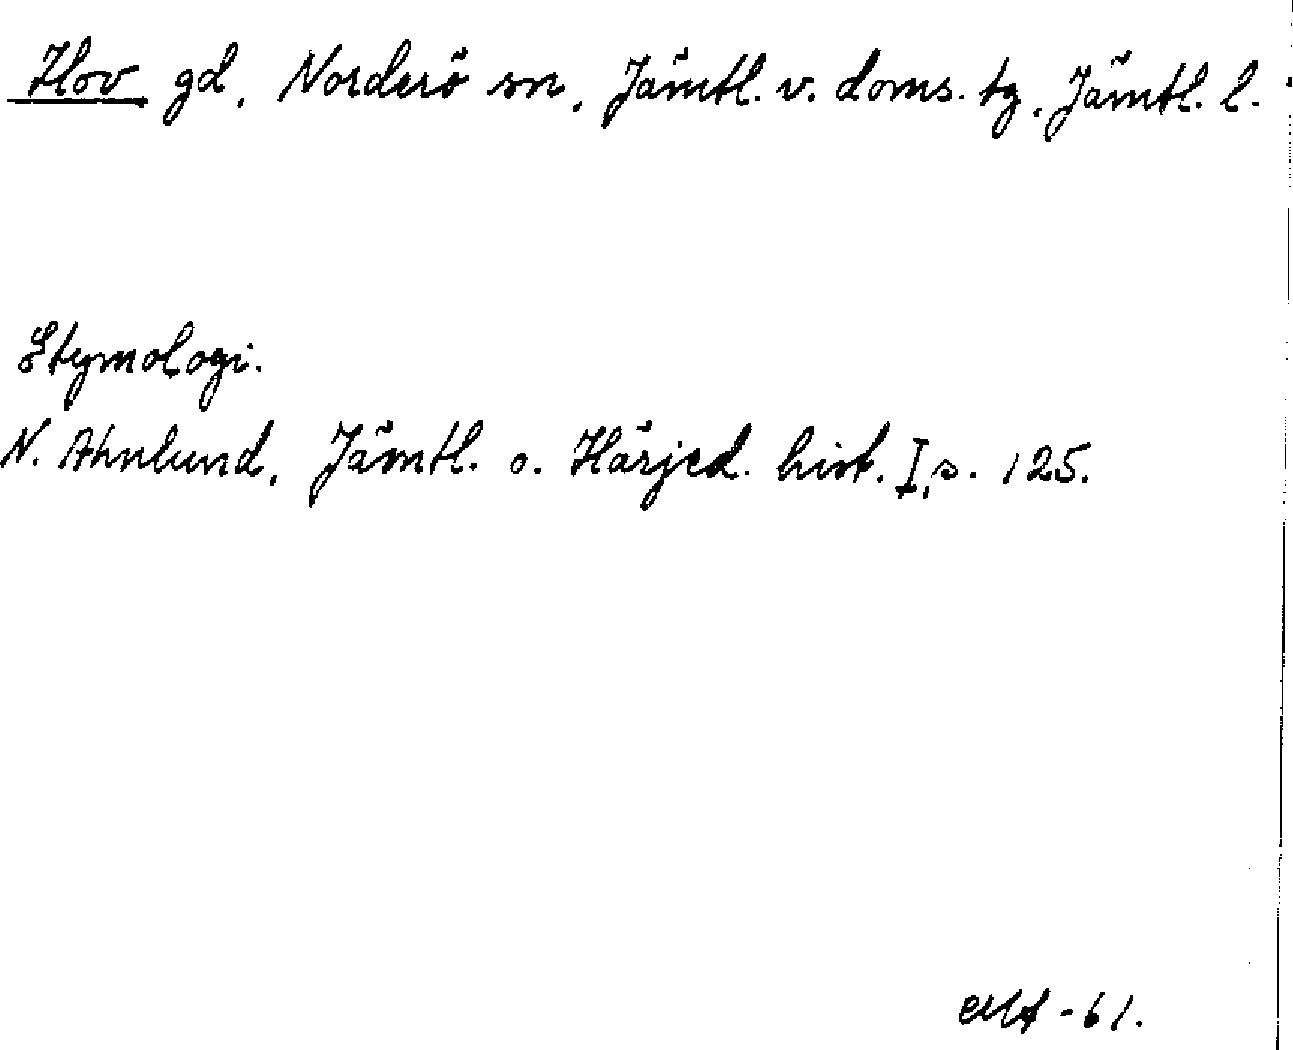 Hov gd, Norderö sn, Jämtl. v. doms. tg, Jämtl. l.
Etymologi.
N. Ahnlund, Jämtl. o. Härjed. hist. I, s. 125.
-61.